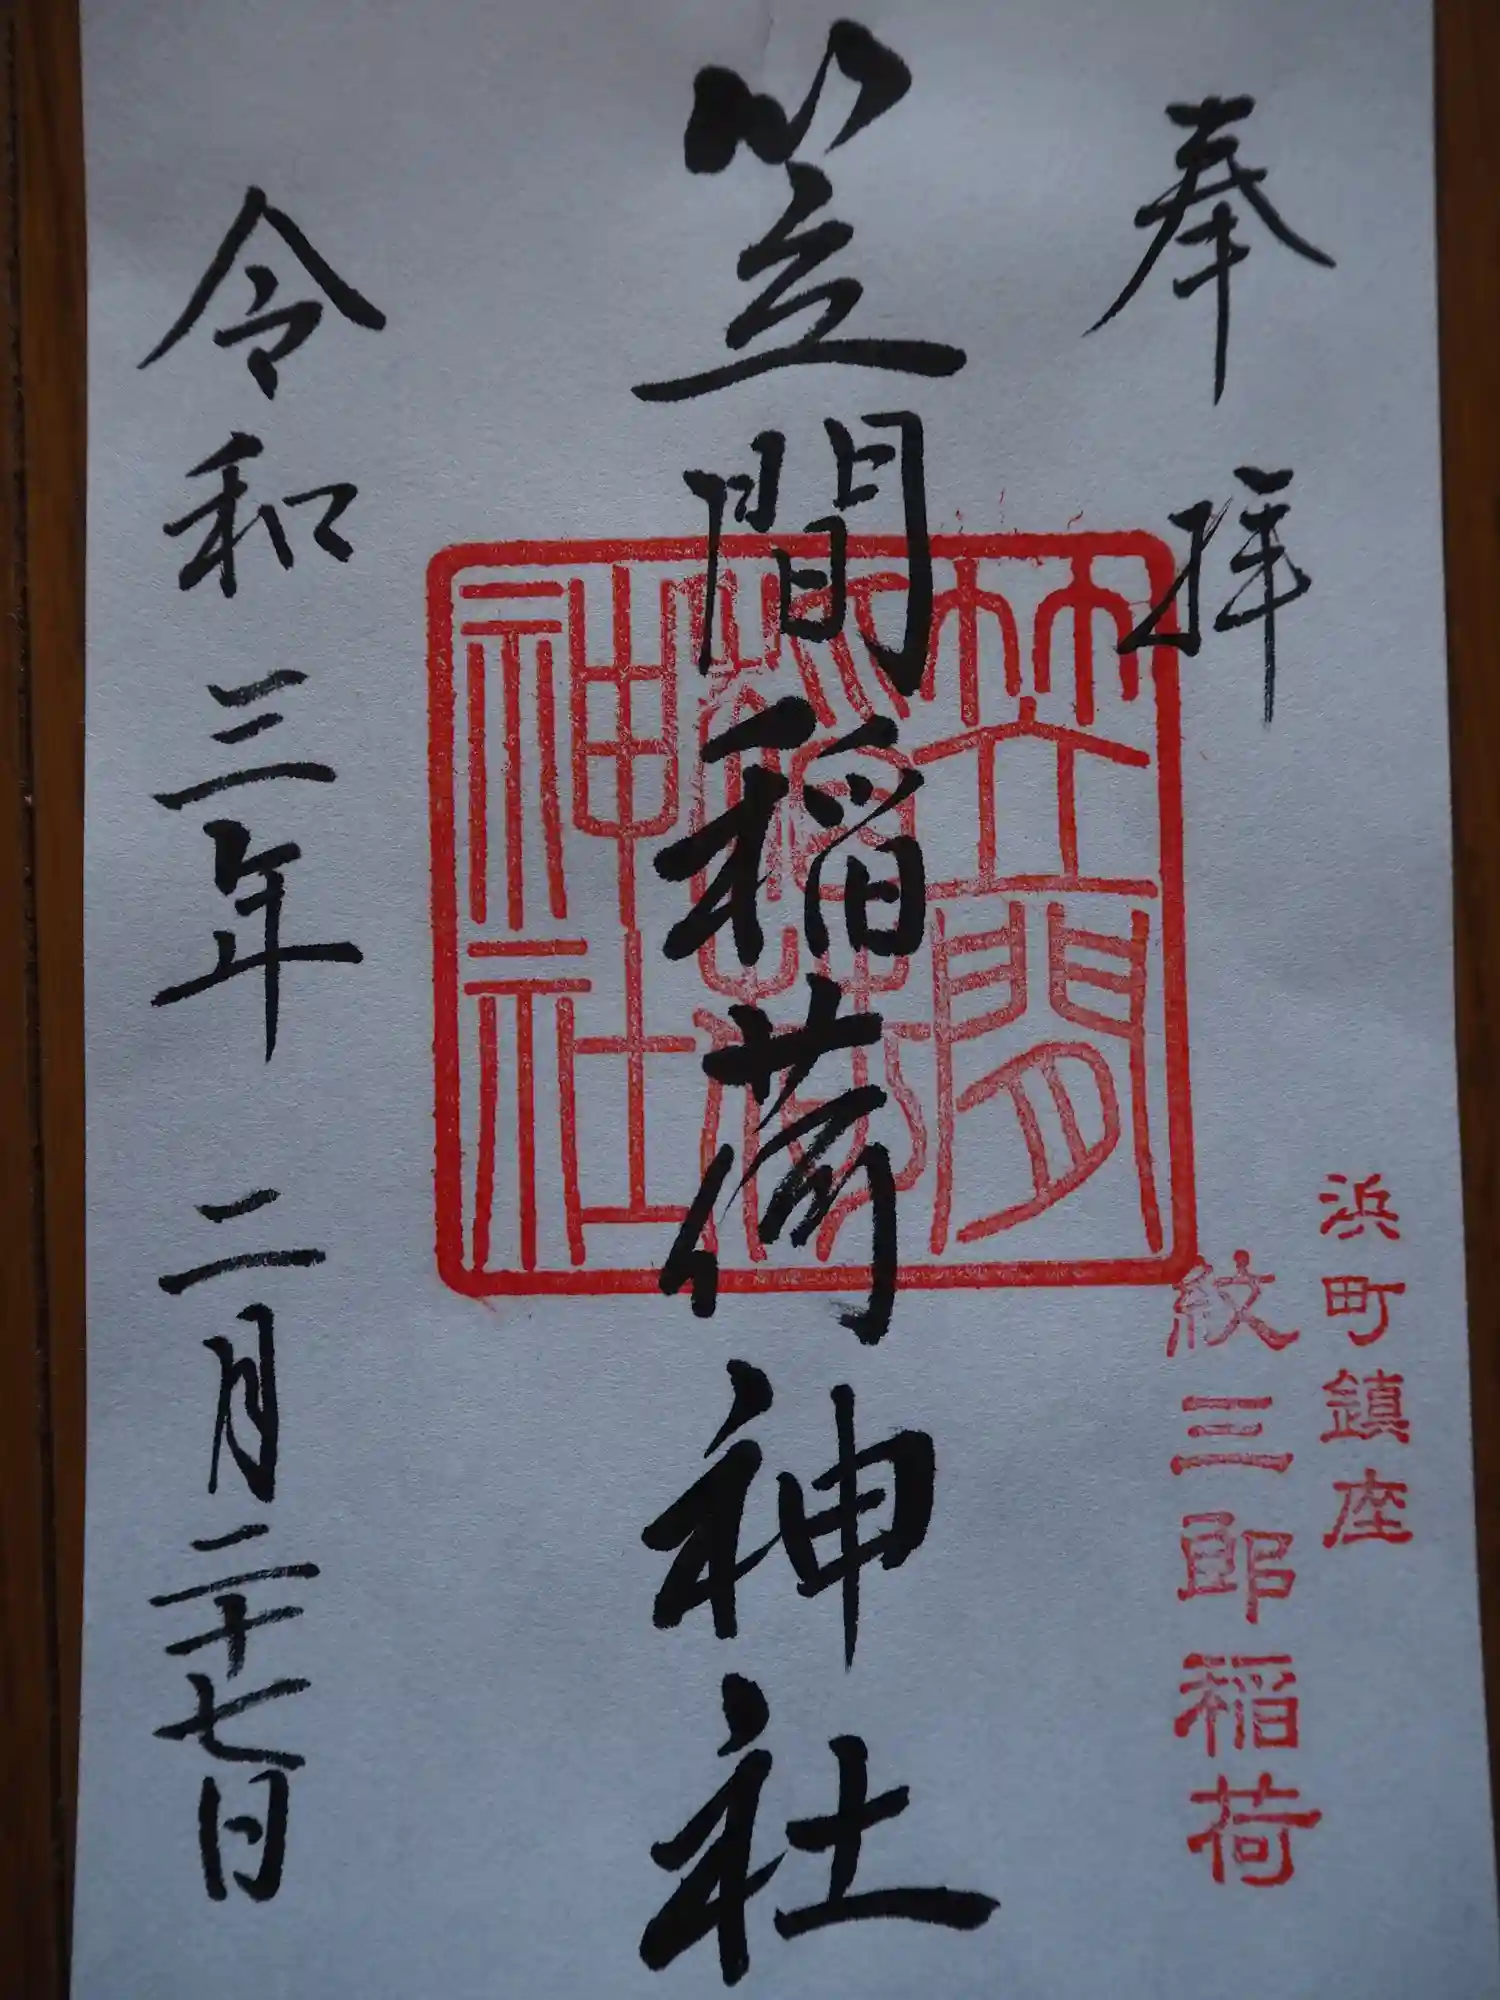 奉拝
浜町鎮座
紋三郎稲荷
笠間稲荷神社
笠間
稲荷
神社
令和三年二月二十七日